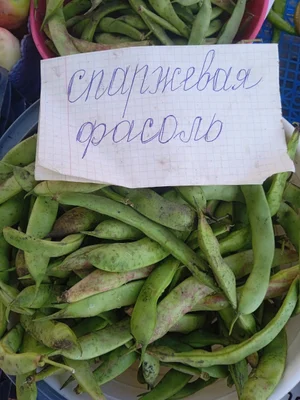 спаржевая
фасоль